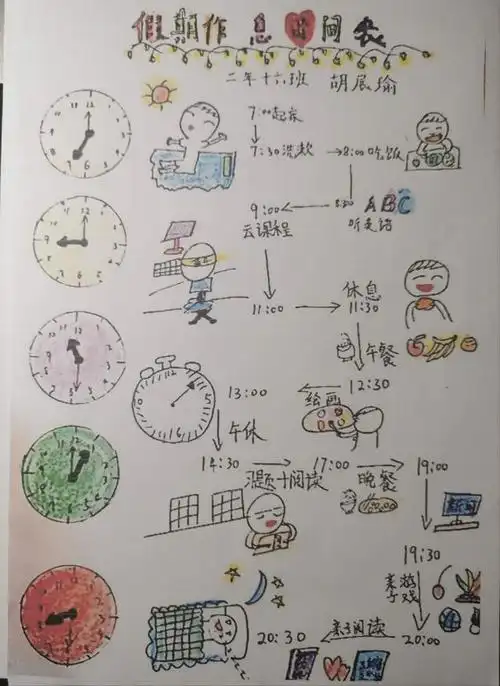 假期作息时间表
二年十六班 胡展瑜
7:00起床
7:30洗漱 8:00吃饭
9:00 8:30 ABC
云课程 听英语
11:00 休息
11:30
午餐
13:00 绘画 12:30
午休
14:30 17:00 19:00
习题+阅读 晚餐
新闻
19:30
亲子游戏
20:30 亲子阅读 20:00